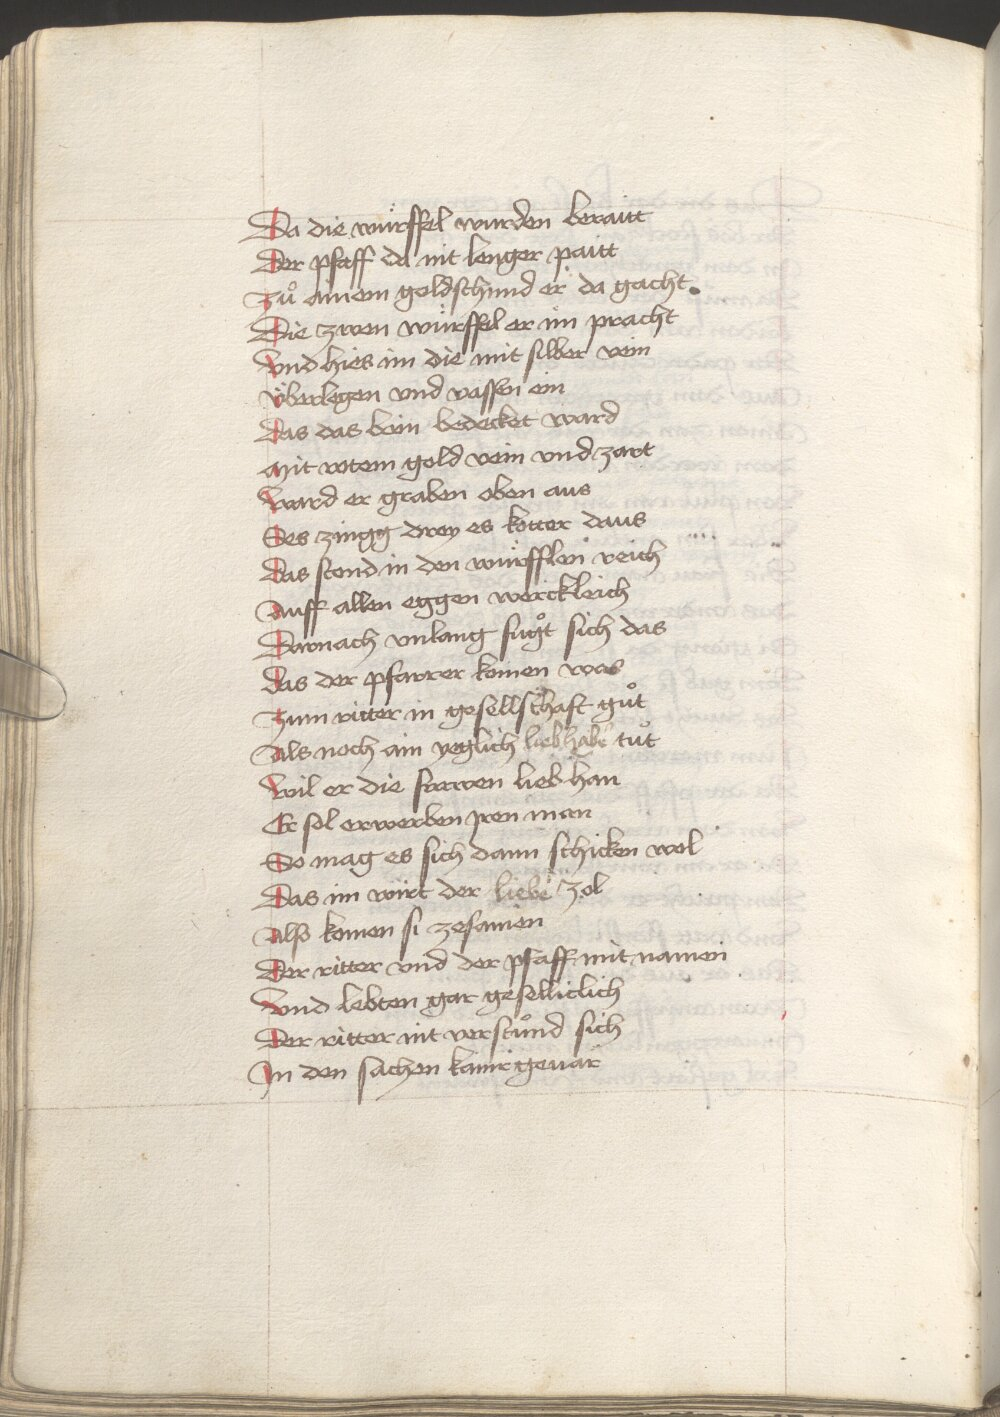 Da die würffel wurden beraitt
Der pfaff da nit lenger paitt
Zů ainem goldschmid er da gacht
Die zwen würffel er im pracht
Vnd hies im die mit silber vein
Vberlegen vnd vassen ein
Das das bein bedecket ward
Mit rotem gold vein vnd zart
Ward er graben oben aus
Ses zingg drey es kotter daus
Das stond in den würfflen reich
Auff allen eggen werckleich
Darnach vnlang fůgt sich das
Das der pfarrer komen was
Zum ritter in gesellschafft gůt
Als noch ain yeglich liebhaber tůt
Wil er die frawen lieb han
Er sol erwerben jren man
So mag es sich dann schicken wol
Das im wirt der liebe zol
Also komen si zesamen
Der ritter vnd der pfaff mit namen
Vnd lebten gar geselliclich
Der ritter nit verstůnd sich
In den sachen kainr geuar